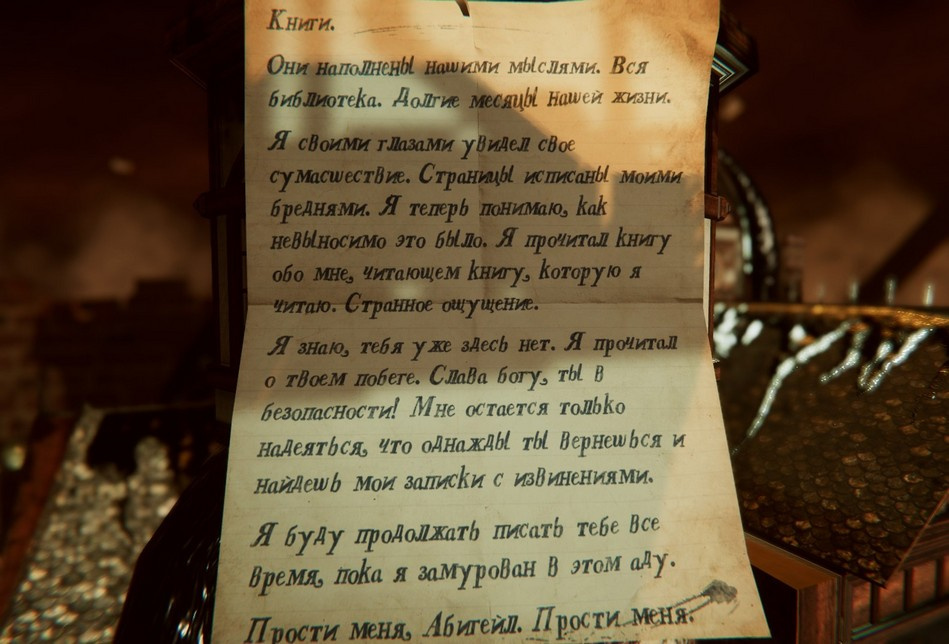 Книги.
Они наполнены нашими мыслями. Вся
библиотека. Долгие месяцы нашей жизни.
Я своими глазами увидел свое
сумасшествие. Страницы исписаны моими
бреднями. Я теперь понимаю, как
невыносимо это было. Я прочитал книгу
обо мне, читающем книгу, которую я
читаю. Странное ощущение.
Я знаю, тебя уже здесь нет. Я прочитал
о твоем побеге. Слава богу, ты в
безопасности! Мне остается только
надеяться, что однажды ты вернешься и
найдешь мои записки с извинениями.
Я буду продолжать писать тебе все
время, пока я замурован в этом аду.
Прости меня, Абигейл. Прости меня.